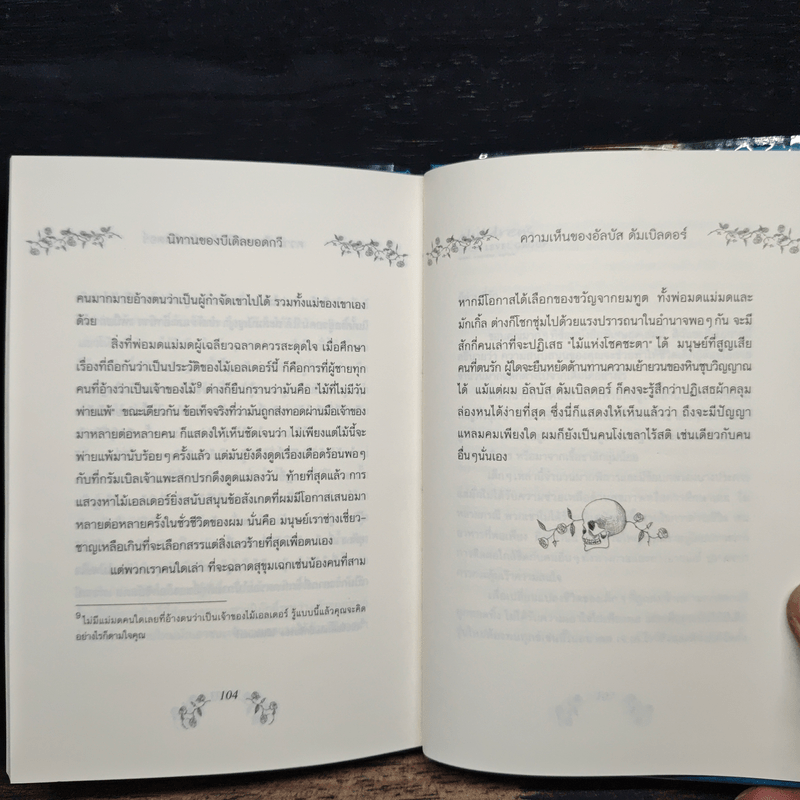 นิทานของบีเดิลยอดกวี
คนมากมายอ้างตนว่าเป็นผู้กำจัดเขาไปได้ รวมทั้งแม่ของเขาเอง
ด้วย
สิ่งที่พ่อมดแม่มดผู้เฉลียวฉลาดควรสะดุดใจ เมื่อศึกษา
เรื่องที่ถือกันว่าเป็นประวัติของไม้เอลเดอร์นี้ ก็คือการที่ผู้ชายทุก
คนที่อ้างว่าเป็นเจ้าของไม้⁹ ต่างก็ยืนกรานว่ามันคือ "ไม้ที่ไม่มีวัน
พ่ายแพ้" ขณะเดียวกัน ข้อเท็จจริงที่ว่ามันถูกส่งทอดผ่านมือเจ้าของ
มาหลายต่อหลายคน ก็แสดงให้เห็นชัดเจนว่า ไม่เพียงแต่ไม้นี้จะ
พ่ายแพ้มานับร้อยๆ ครั้งแล้ว แต่มันยังดึงดูดเรื่องเดือดร้อนพอๆ
กับที่กรัมเบิลเจ้าแพะสกปรกดึงดูดแมลงวัน ท้ายที่สุดแล้ว การ
แสวงหาไม้เอลเดอร์ยิ่งสนับสนุนข้อสังเกตที่ผมมีโอกาสเสนอมา
หลายต่อหลายครั้งในชั่วชีวิตของผม นั่นคือ มนุษย์เราช่างเชี่ยว-
ชาญเหลือเกินที่จะเลือกสรรแต่สิ่งเลวร้ายที่สุดเพื่อตนเอง
แต่พวกเราคนใดเล่า ที่จะฉลาดสุขุมเฉกเช่นน้องคนที่สาม
⁹ ไม่มีแม่มดคนใดเลยที่อ้างตนว่าเป็นเจ้าของไม้เอลเดอร์ รู้แบบนี้แล้วคุณจะคิด
อย่างไรก็ตามใจคุณ
104
ความเห็นของอัลบัส ดัมเบิลดอร์
หากมีโอกาสได้เลือกของขวัญจากยมทูต ทั้งพ่อมดแม่มดและ
มักเกิ้ล ต่างก็โชกชุ่มไปด้วยแรงปรารถนาในอำนาจพอๆ กัน จะมี
สักกี่คนเล่าที่จะปฏิเสธ "ไม้แห่งโชคชะตา" ได้ มนุษย์ที่สูญเสีย
คนที่ตนรัก ผู้ใดจะยืนหยัดต้านทานความเย้ายวนของหินชุบวิญญาณ
ได้ แม้แต่ผม อัลบัส ดัมเบิลดอร์ ก็คงจะรู้สึกว่าปฏิเสธผ้าคลุม
ล่องหนได้ง่ายที่สุด ซึ่งนี่ก็แสดงให้เห็นแล้วว่า ถึงจะมีปัญญา
แหลมคมเพียงใด ผมก็ยังเป็นคนโง่เขลาไร้สติ เช่นเดียวกับคน
อื่นๆ นั่นเอง